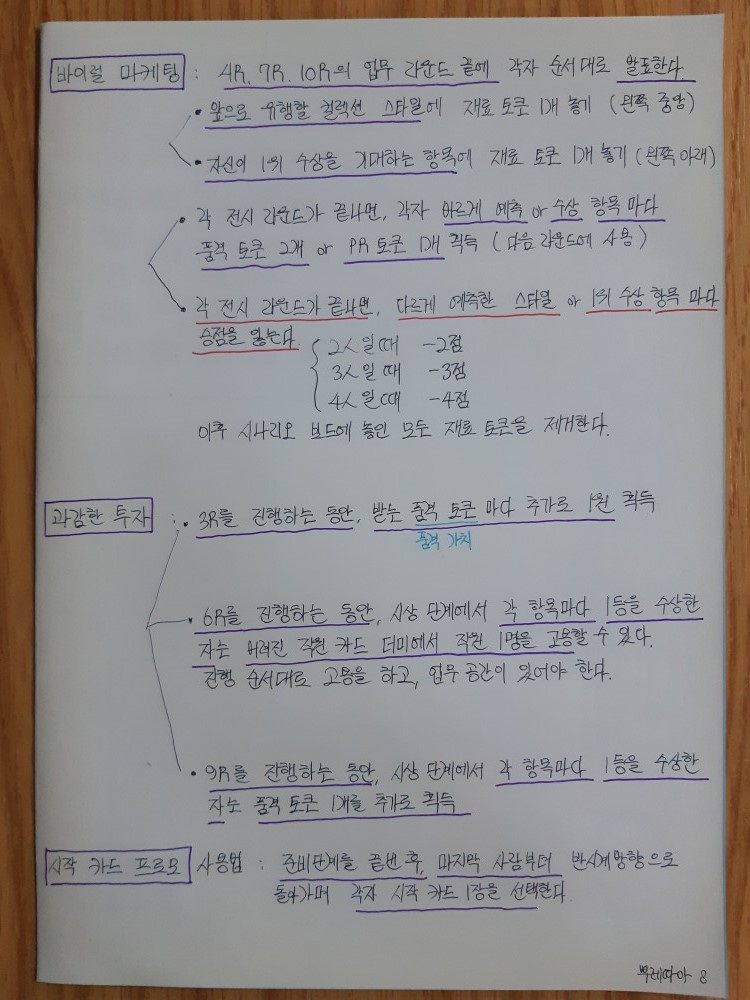 바이럴 마케팅 : 4R, 7R, 10R의 업무 라운드 끝에 각자 순서대로 발표한다.
• 앞으로 유행할 컬렉션 스타일에 재료 토큰 1개 놓기 (왼쪽 중앙)
• 자신이 1위 수상을 기대하는 항목에 재료 토큰 1개 놓기 (왼쪽 아래)
• 각 전시 라운드가 끝나면, 각자 바르게 예측 or 수상 항목 마다
품격 토큰 2개 or PR 토큰 1개 획득 (다음 라운드에 사용)
• 각 전시 라운드가 끝나면, 다르게 예측한 스타일 or 1위 수상 항목 마다
승점을 잃는다.
2人일때 -2점
3人일때 -3점
4人일때 -4점
이후 시나리오 보드에 놓인 모든 재료 토큰을 제거한다.
과감한 투자 : • 3R를 진행하는 동안, 받는 품격 토큰 마다 추가로 1원 획득
품격 가치
• 6R를 진행하는 동안, 시상 단계에서 각 항목마다 1등을 수상한
자는 버려진 직원 카드 더미에서 직원 1명을 고용할 수 있다.
진행 순서대로 고용을 하고, 업무 공간이 있어야 한다.
• 9R를 진행하는 동안, 시상 단계에서 각 항목마다 1등을 수상한
자는 품격 토큰 1개를 추가로 획득
시작 카드 프로모 사용법 : 준비단계를 끝낸 후, 마지막 사람부터 반시계방향으로
돌아가며 각자 시작 카드 1장을 선택한다.
쁘레따아 8